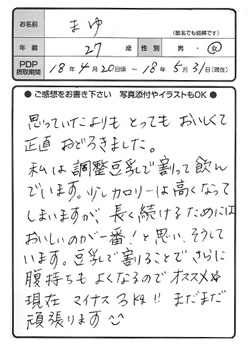 お名前 まゆ
(匿名でも結構です)
年齢 27歳 性別 男・女
PDP摂取期間 18年4月20日頃 ~ 18年5月31日(現在)
●ご感想をお書き下さい 写真添付やイラストもOK●
思っていたよりも とっても おいしくて
正直 おどろきました。
私は調整豆乳で割って飲ん
でいます。少しカロリーは高くなって
しまいますが、長く続けるためには
おいしいのが一番!と思い、そうして
います。豆乳で割ることでさらに
腹持ちもよくなるのでオススメ☆
現在 マイナス3kg!! まだまだ
頑張ります